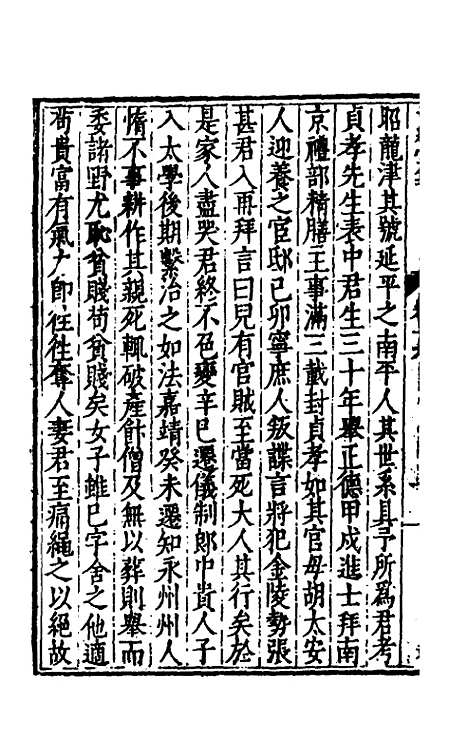 昭龍津其號延平之南平人其世系具予所為君考
貞孝先生表中君生三十年舉正德甲戍進士拜南
京禮部精膳主事滿三載封貞孝如其官母胡太安
人迎養之官邸已卯寧庶人叛諜言將犯金陵勢張
甚君入再拜言曰兒有官賊至當死大人其行矣於
是家人盡哭君終不色變辛巳遷儀制郎中貴人子
入太學後期繫治之如法嘉靖癸未遷知永州州人
惰不事耕作其親死輒破產飰僧及無以葬則舉而
委諸野尤恥貧賤苟貧賤矣女子雖已字舍之他適
苟貴富有氣力即徃徃奪人妻君至痛繩之以絕故